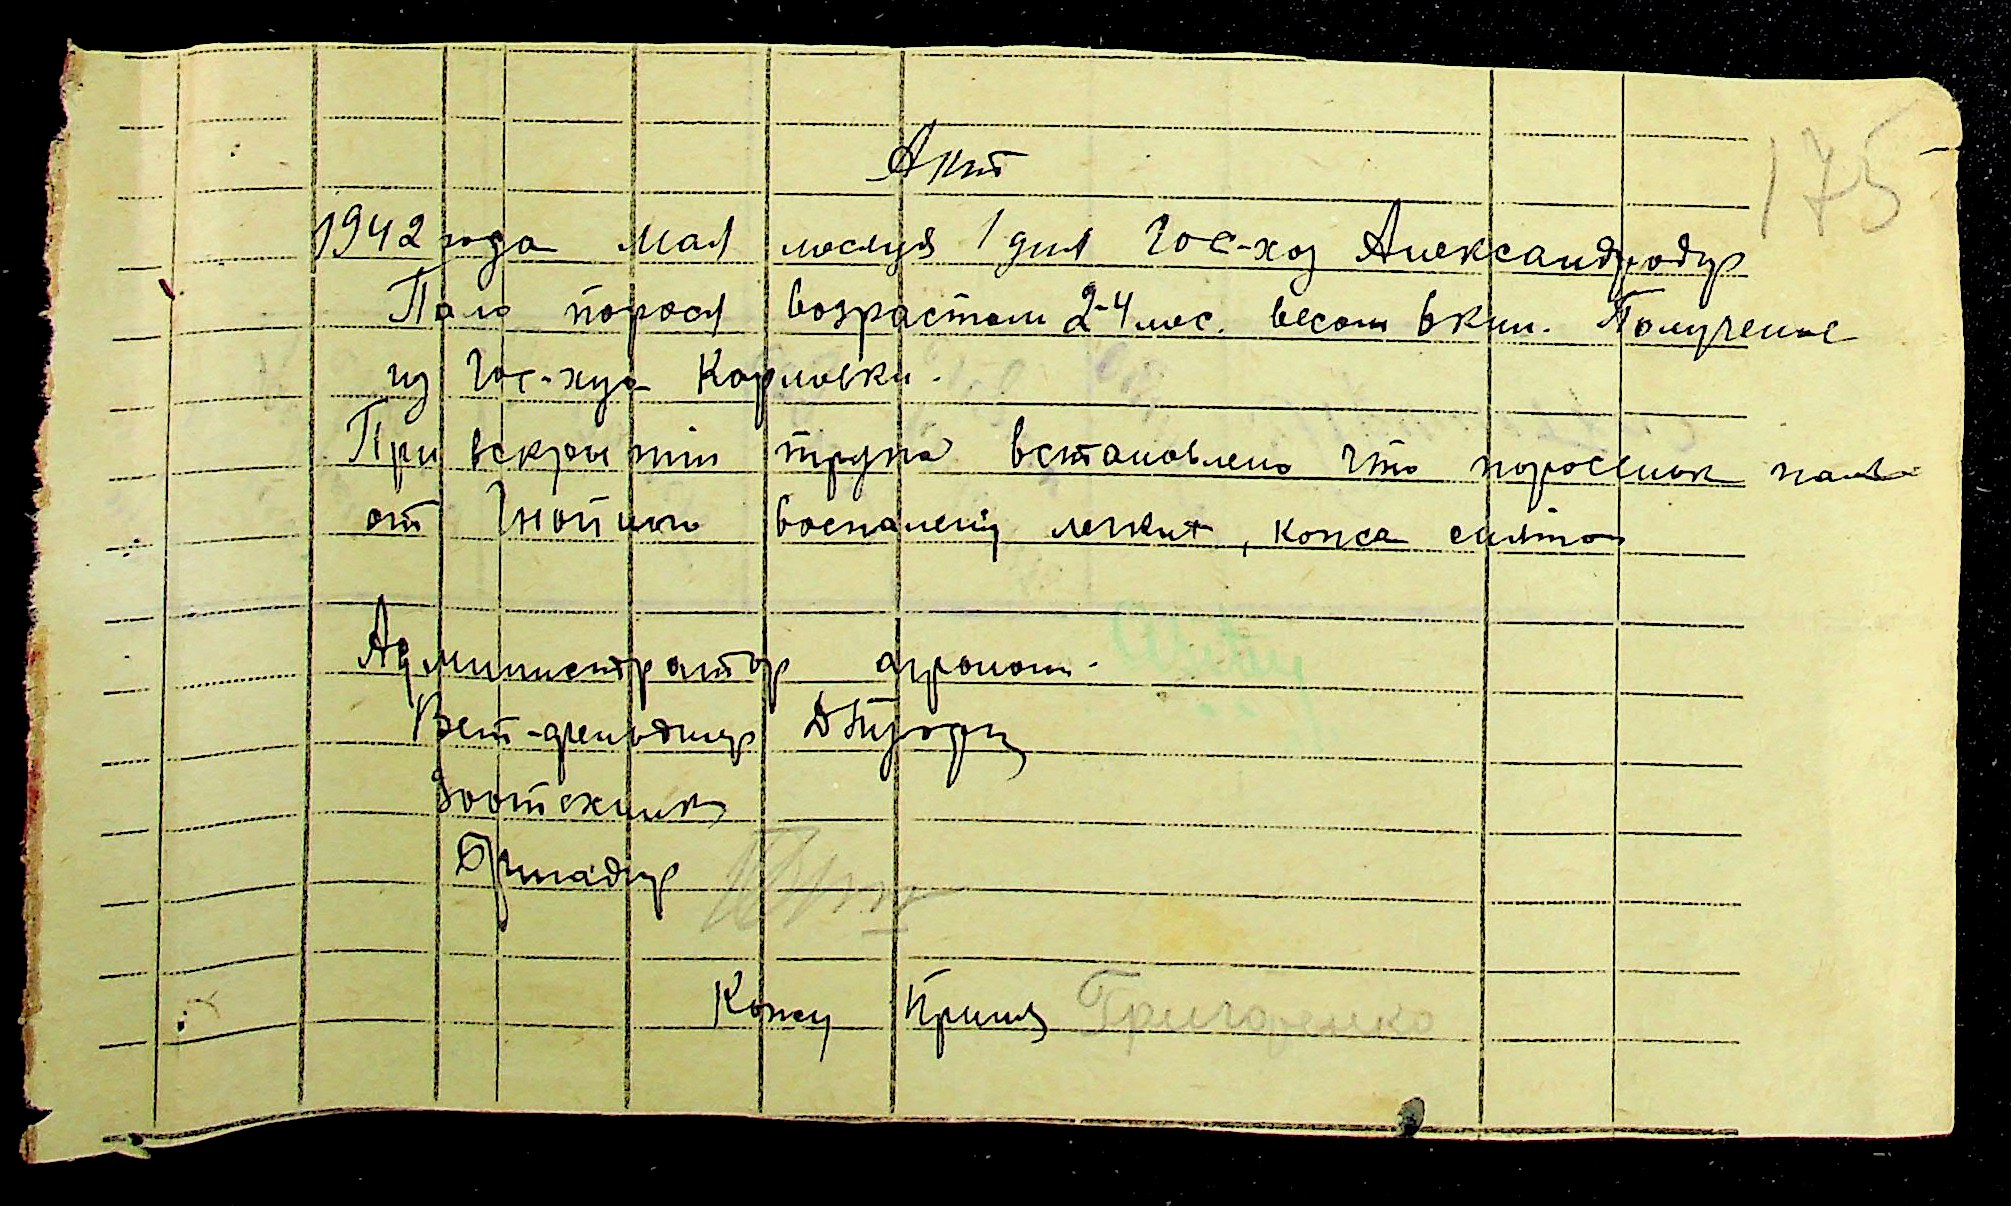 175
Акт
1942 года мая месяця 1 дня Гос-хоз Александродар
Пало порося возрастом 2-4 мес. весом 6 кил. Полученое
из Гос-хуза Карловки.
При вскрытии трупа встановлено что поросенок пал
от Гнойного воспалению легких, кожа снята
Администратор агроном.
Вет-фельдшер
Зоотехник
Бригадир
Кожу Принял Григоренко